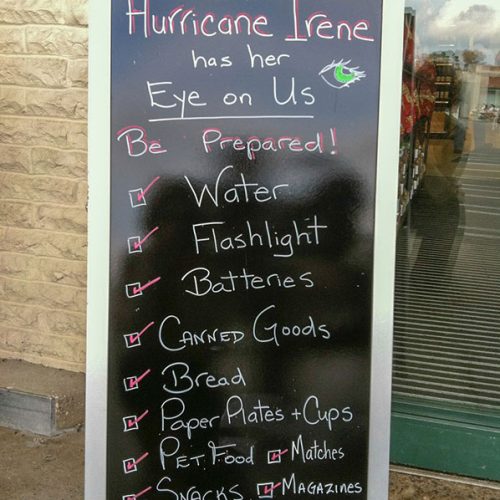 Hurricane Irene
has her
Eye on Us
Be Prepared!
Water
Flashlight
Batteries
Canned Goods
Bread
Paper Plates + Cups
Pet Food Matches
Snacks Magazines